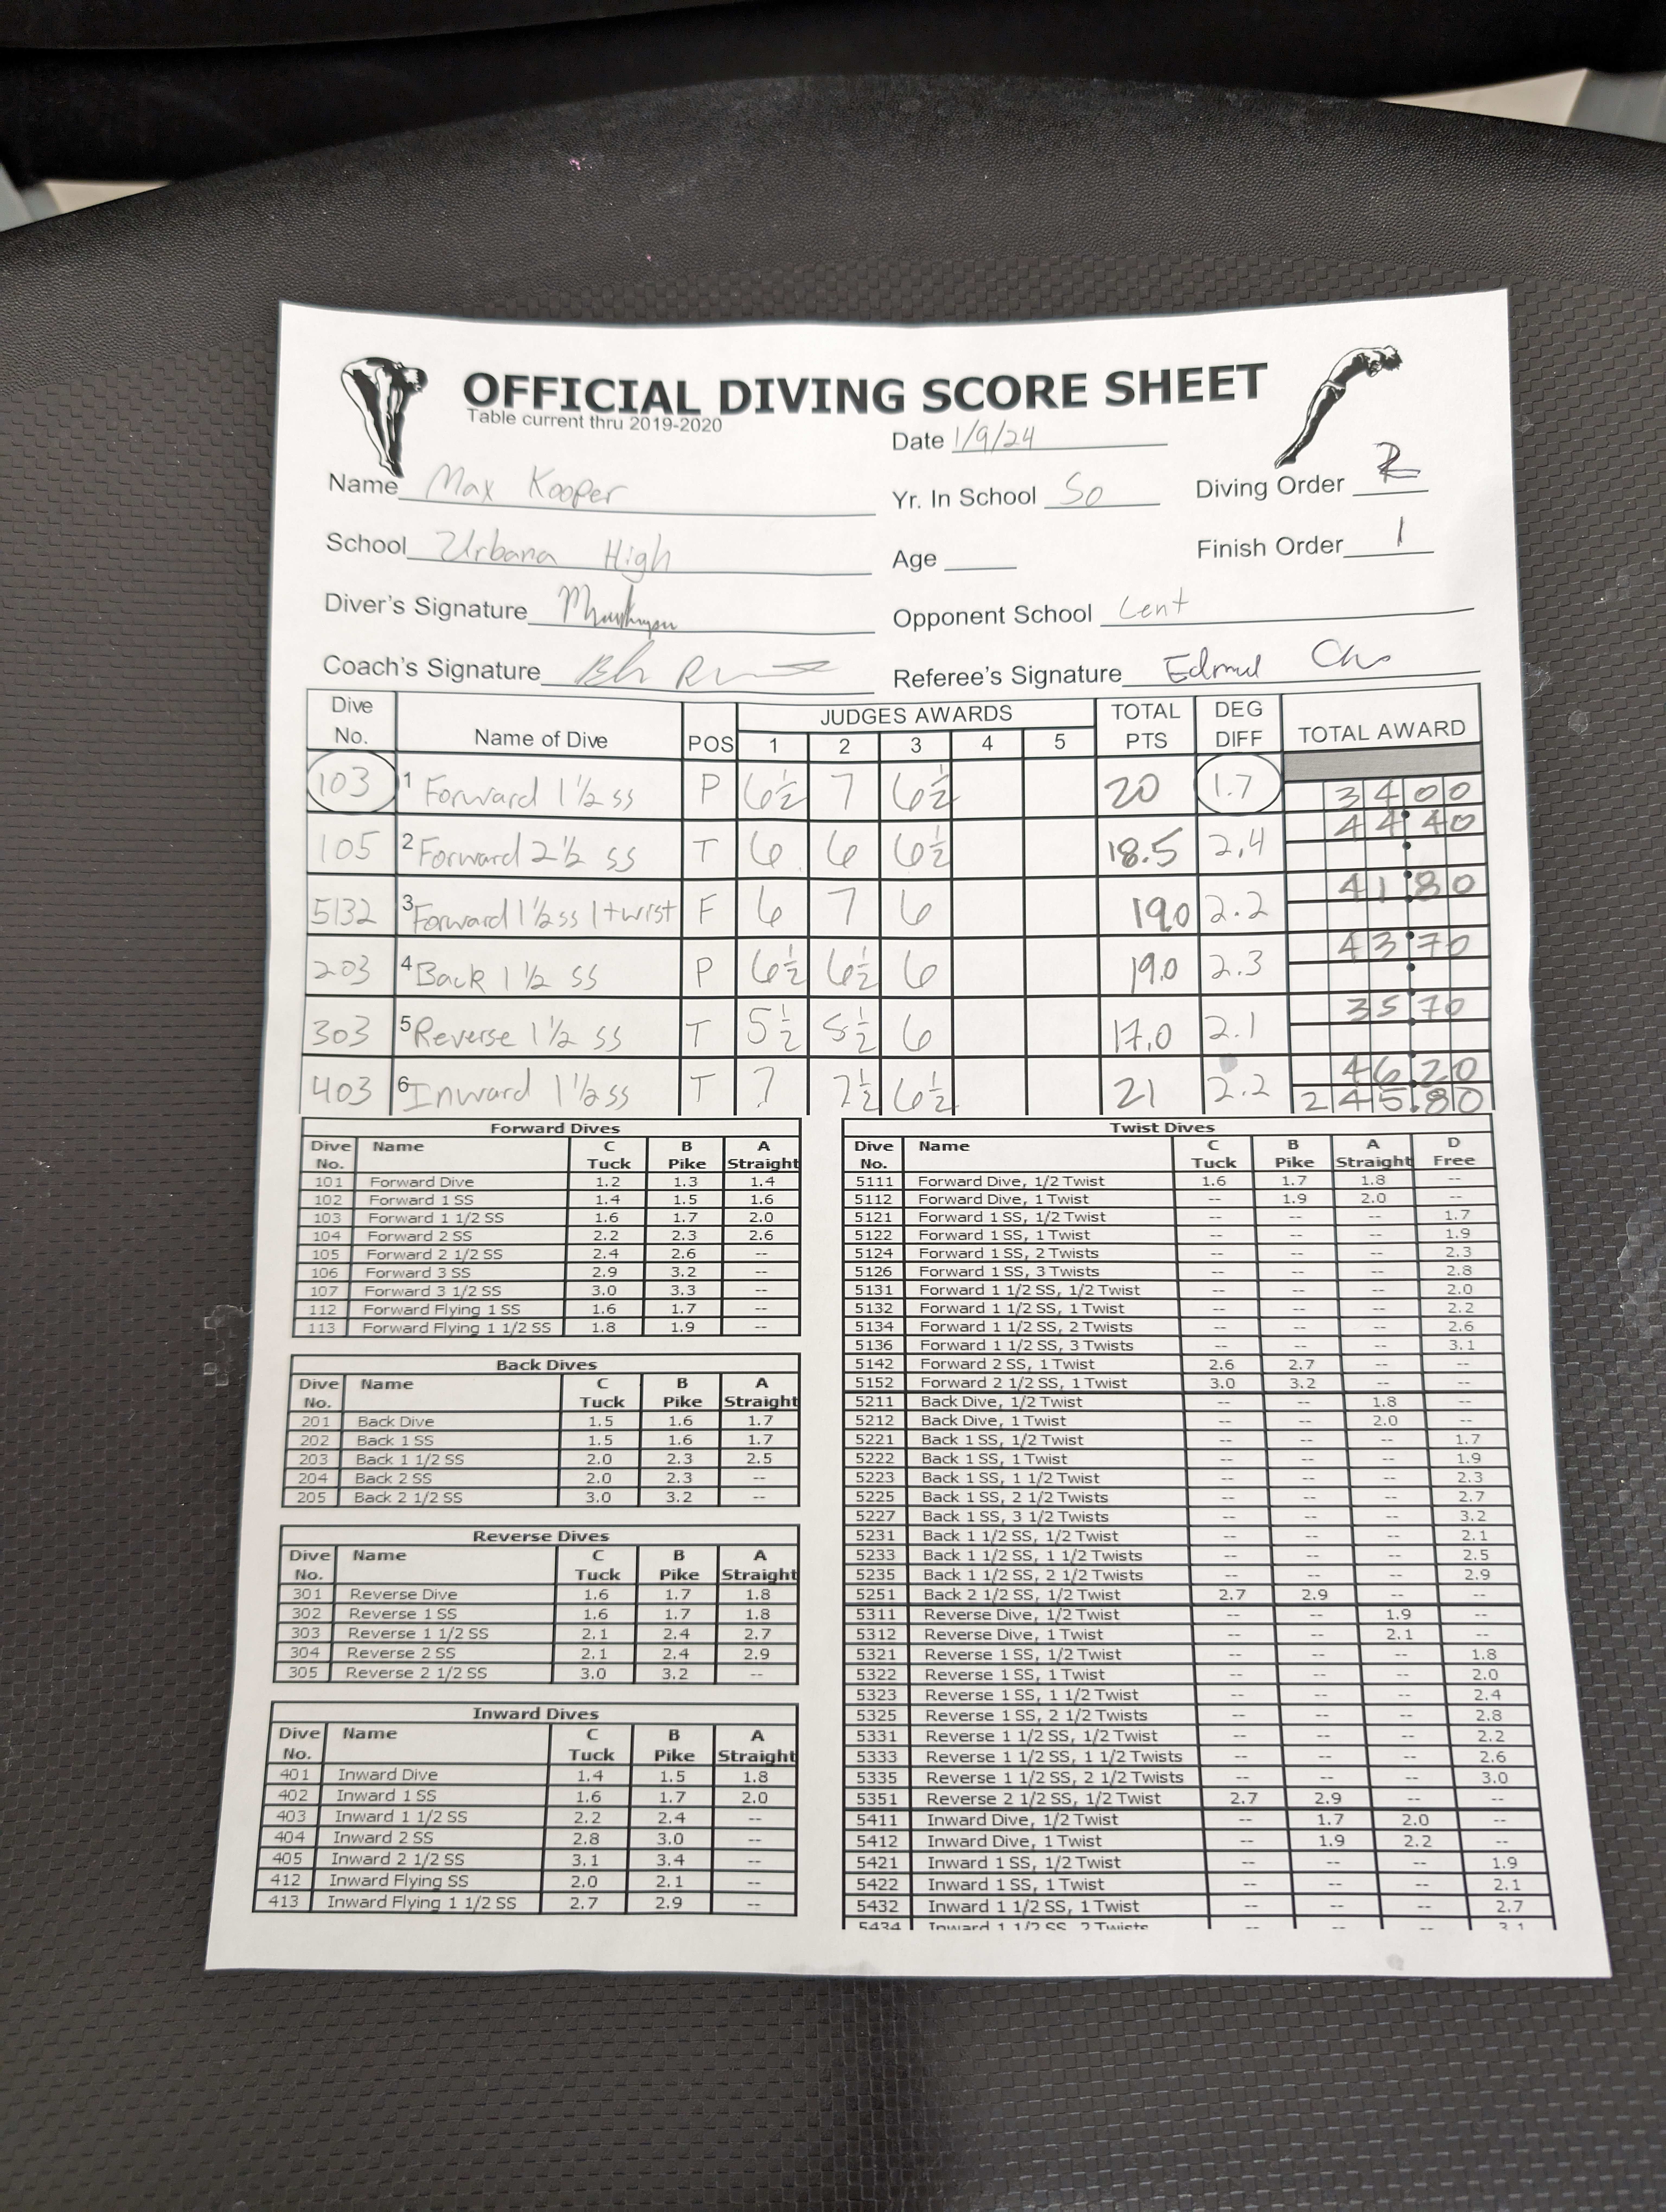 OFFICIAL DIVING SCORE SHEET
Table current thru 2019-2020
Date 1/9/24
Name Max Kooper
Yr. In School So
Diving Order 2
School Urbana High
Age
Finish Order 1
Diver's Signature
Opponent School Cent
Coach's Signature
Referee's Signature
Dive No. Name of Dive POS JUDGES AWARDS 1 2 3 4 5 TOTAL PTS DEG DIFF TOTAL AWARD
103 1 Forward 1 1/2 ss P 6 1/2 7 6 1/2 20 1.7 34 00
105 2 Forward 2 1/2 ss T 6 6 6 1/2 18.5 2.4 44.40
5132 3 Forward 1 1/2 ss 1 twist F 6 7 6 19.0 2.2 41.80
203 4 Back 1 1/2 ss P 6 1/2 6 1/2 6 19.0 2.3 43.70
303 5 Reverse 1 1/2 ss T 5 1/2 5 1/2 6 17.0 2.1 35.70
403 6 Inward 1 1/2 ss T 7 7 1/2 6 1/2 21 2.2 46.20
245.80
Forward Dives
Dive No. Name C Tuck B Pike A Straight
101 Forward Dive 1.2 1.3 1.4
102 Forward 1 SS 1.4 1.5 1.6
103 Forward 1 1/2 SS 1.6 1.7 2.0
104 Forward 2 SS 2.2 2.3 2.6
105 Forward 2 1/2 SS 2.4 2.6 --
106 Forward 3 SS 2.9 3.2 --
107 Forward 3 1/2 SS 3.0 3.3 --
112 Forward Flying 1 SS 1.6 1.7 --
113 Forward Flying 1 1/2 SS 1.8 1.9 --
Back Dives
Dive No. Name C Tuck B Pike A Straight
201 Back Dive 1.5 1.6 1.7
202 Back 1 SS 1.5 1.6 1.7
203 Back 1 1/2 SS 2.0 2.3 2.5
204 Back 2 SS 2.0 2.3 --
205 Back 2 1/2 SS 3.0 3.2 --
Reverse Dives
Dive No. Name C Tuck B Pike A Straight
301 Reverse Dive 1.6 1.7 1.8
302 Reverse 1 SS 1.6 1.7 1.8
303 Reverse 1 1/2 SS 2.1 2.4 2.7
304 Reverse 2 SS 2.1 2.4 2.9
305 Reverse 2 1/2 SS 3.0 3.2 --
Inward Dives
Dive No. Name C Tuck B Pike A Straight
401 Inward Dive 1.4 1.5 1.8
402 Inward 1 SS 1.6 1.7 2.0
403 Inward 1 1/2 SS 2.2 2.4 --
404 Inward 2 SS 2.8 3.0 --
405 Inward 2 1/2 SS 3.1 3.4 --
412 Inward Flying SS 2.0 2.1 --
413 Inward Flying 1 1/2 SS 2.7 2.9 --
Twist Dives
Dive No. Name C Tuck B Pike A Straight D Free
5111 Forward Dive, 1/2 Twist 1.6 1.7 1.8 --
5112 Forward Dive, 1 Twist -- 1.9 2.0 --
5121 Forward 1 SS, 1/2 Twist -- -- -- 1.7
5122 Forward 1 SS, 1 Twist -- -- -- 1.9
5124 Forward 1 SS, 2 Twists -- -- -- 2.3
5126 Forward 1 SS, 3 Twists -- -- -- 2.8
5131 Forward 1 1/2 SS, 1/2 Twist -- -- -- 2.0
5132 Forward 1 1/2 SS, 1 Twist -- -- -- 2.2
5134 Forward 1 1/2 SS, 2 Twists -- -- -- 2.6
5136 Forward 1 1/2 SS, 3 Twists -- -- -- 3.1
5142 Forward 2 SS, 1 Twist 2.6 2.7 -- --
5152 Forward 2 1/2 SS, 1 Twist 3.0 3.2 -- --
5211 Back Dive, 1/2 Twist -- -- 1.8 --
5212 Back Dive, 1 Twist -- -- 2.0 --
5221 Back 1 SS, 1/2 Twist -- -- -- 1.7
5222 Back 1 SS, 1 Twist -- -- -- 1.9
5223 Back 1 SS, 1 1/2 Twists -- -- -- 2.3
5225 Back 1 SS, 2 1/2 Twists -- -- -- 2.7
5227 Back 1 SS, 3 1/2 Twists -- -- -- 3.2
5231 Back 1 1/2 SS, 1/2 Twist -- -- -- 2.1
5233 Back 1 1/2 SS, 1 1/2 Twists -- -- -- 2.5
5235 Back 1 1/2 SS, 2 1/2 Twists -- -- -- 2.9
5251 Back 2 1/2 SS, 1/2 Twist 2.7 2.9 -- --
5311 Reverse Dive, 1/2 Twist -- -- 1.9 --
5312 Reverse Dive, 1 Twist -- -- 2.1 --
5321 Reverse 1 SS, 1/2 Twist -- -- -- 1.8
5322 Reverse 1 SS, 1 Twist -- -- -- 2.0
5323 Reverse 1 SS, 1 1/2 Twist -- -- -- 2.4
5325 Reverse 1 SS, 2 1/2 Twists -- -- -- 2.8
5331 Reverse 1 1/2 SS, 1/2 Twist -- -- -- 2.2
5333 Reverse 1 1/2 SS, 1 1/2 Twists -- -- -- 2.6
5335 Reverse 1 1/2 SS, 2 1/2 Twists -- -- -- 3.0
5351 Reverse 2 1/2 SS, 1/2 Twist 2.7 2.9 -- --
5411 Inward Dive, 1/2 Twist -- 1.7 2.0 --
5412 Inward Dive, 1 Twist -- 1.9 2.2 --
5421 Inward 1 SS, 1/2 Twist -- -- -- 1.9
5422 Inward 1 SS, 1 Twist -- -- -- 2.1
5432 Inward 1 1/2 SS, 1 Twist -- -- -- 2.7
5434 Inward 1 1/2 SS, 2 Twists -- -- -- 3.1